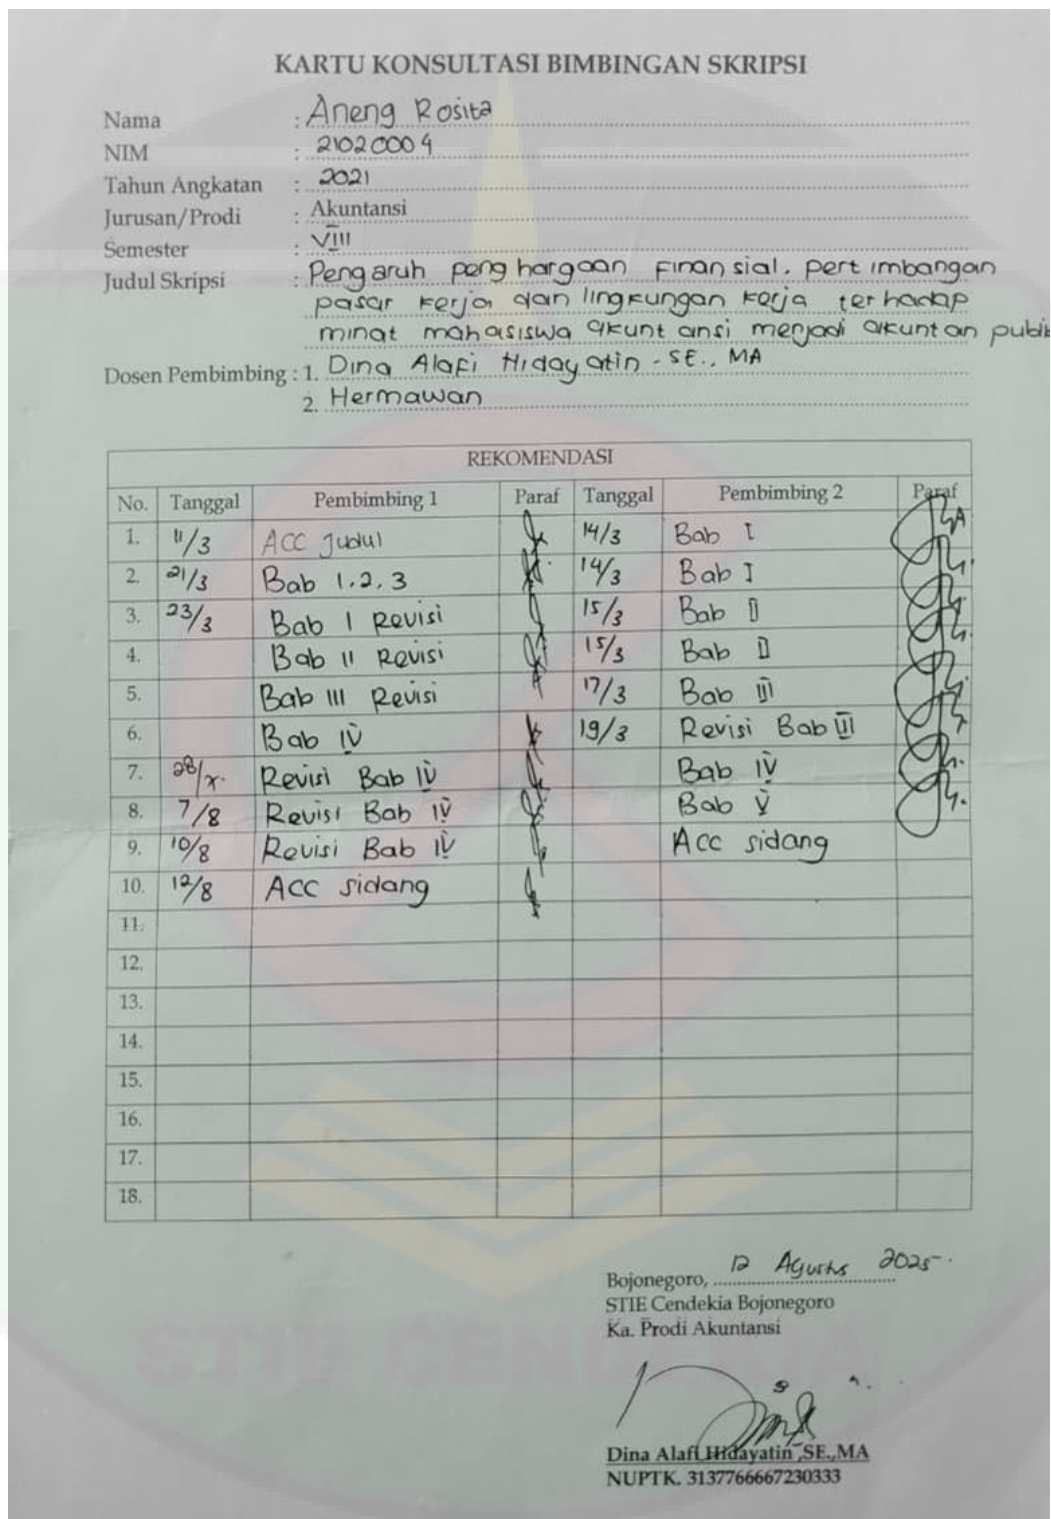 KARTU KONSULTASI BIMBINGAN SKRIPSI
Nama : Aneng Rosita
NIM : 21020004
Tahun Angkatan : 2021
Jurusan/Prodi : Akuntansi
Semester : VIII
Judul Skripsi : Pengaruh penghargaan Finansial, pertimbangan
pasar kerja dan lingkungan kerja terhadap
minat mahasiswa akuntansi menjadi akuntan publik
Dosen Pembimbing : 1. Dina Alafi Hidayatin - SE., MA
2. Hermawan
REKOMENDASI
No. Tanggal Pembimbing 1 Paraf Tanggal Pembimbing 2 Paraf
1. 11/3 ACC Judul 14/3 Bab I
2. 21/3 Bab 1.2.3 14/3 Bab I
3. 23/3 Bab I Revisi 15/3 Bab II
4. Bab II Revisi 15/3 Bab II
5. Bab III Revisi 17/3 Bab III
6. Bab IV 19/3 Revisi Bab III
7. Revisi Bab IV Bab IV
8. 7/8 Revisi Bab IV Bab V
9. 10/8 Revisi Bab IV Acc sidang
10. 12/8 ACC sidang
11.
12.
13.
14.
15.
16.
17.
18.
Bojonegoro, 12 Agustus 2025
STIE Cendekia Bojonegoro
Ka. Prodi Akuntansi
STIE CENDEKIA
Dina Alafi Hidayatin ,SE.,MA
NUPTK. 3137766667230333